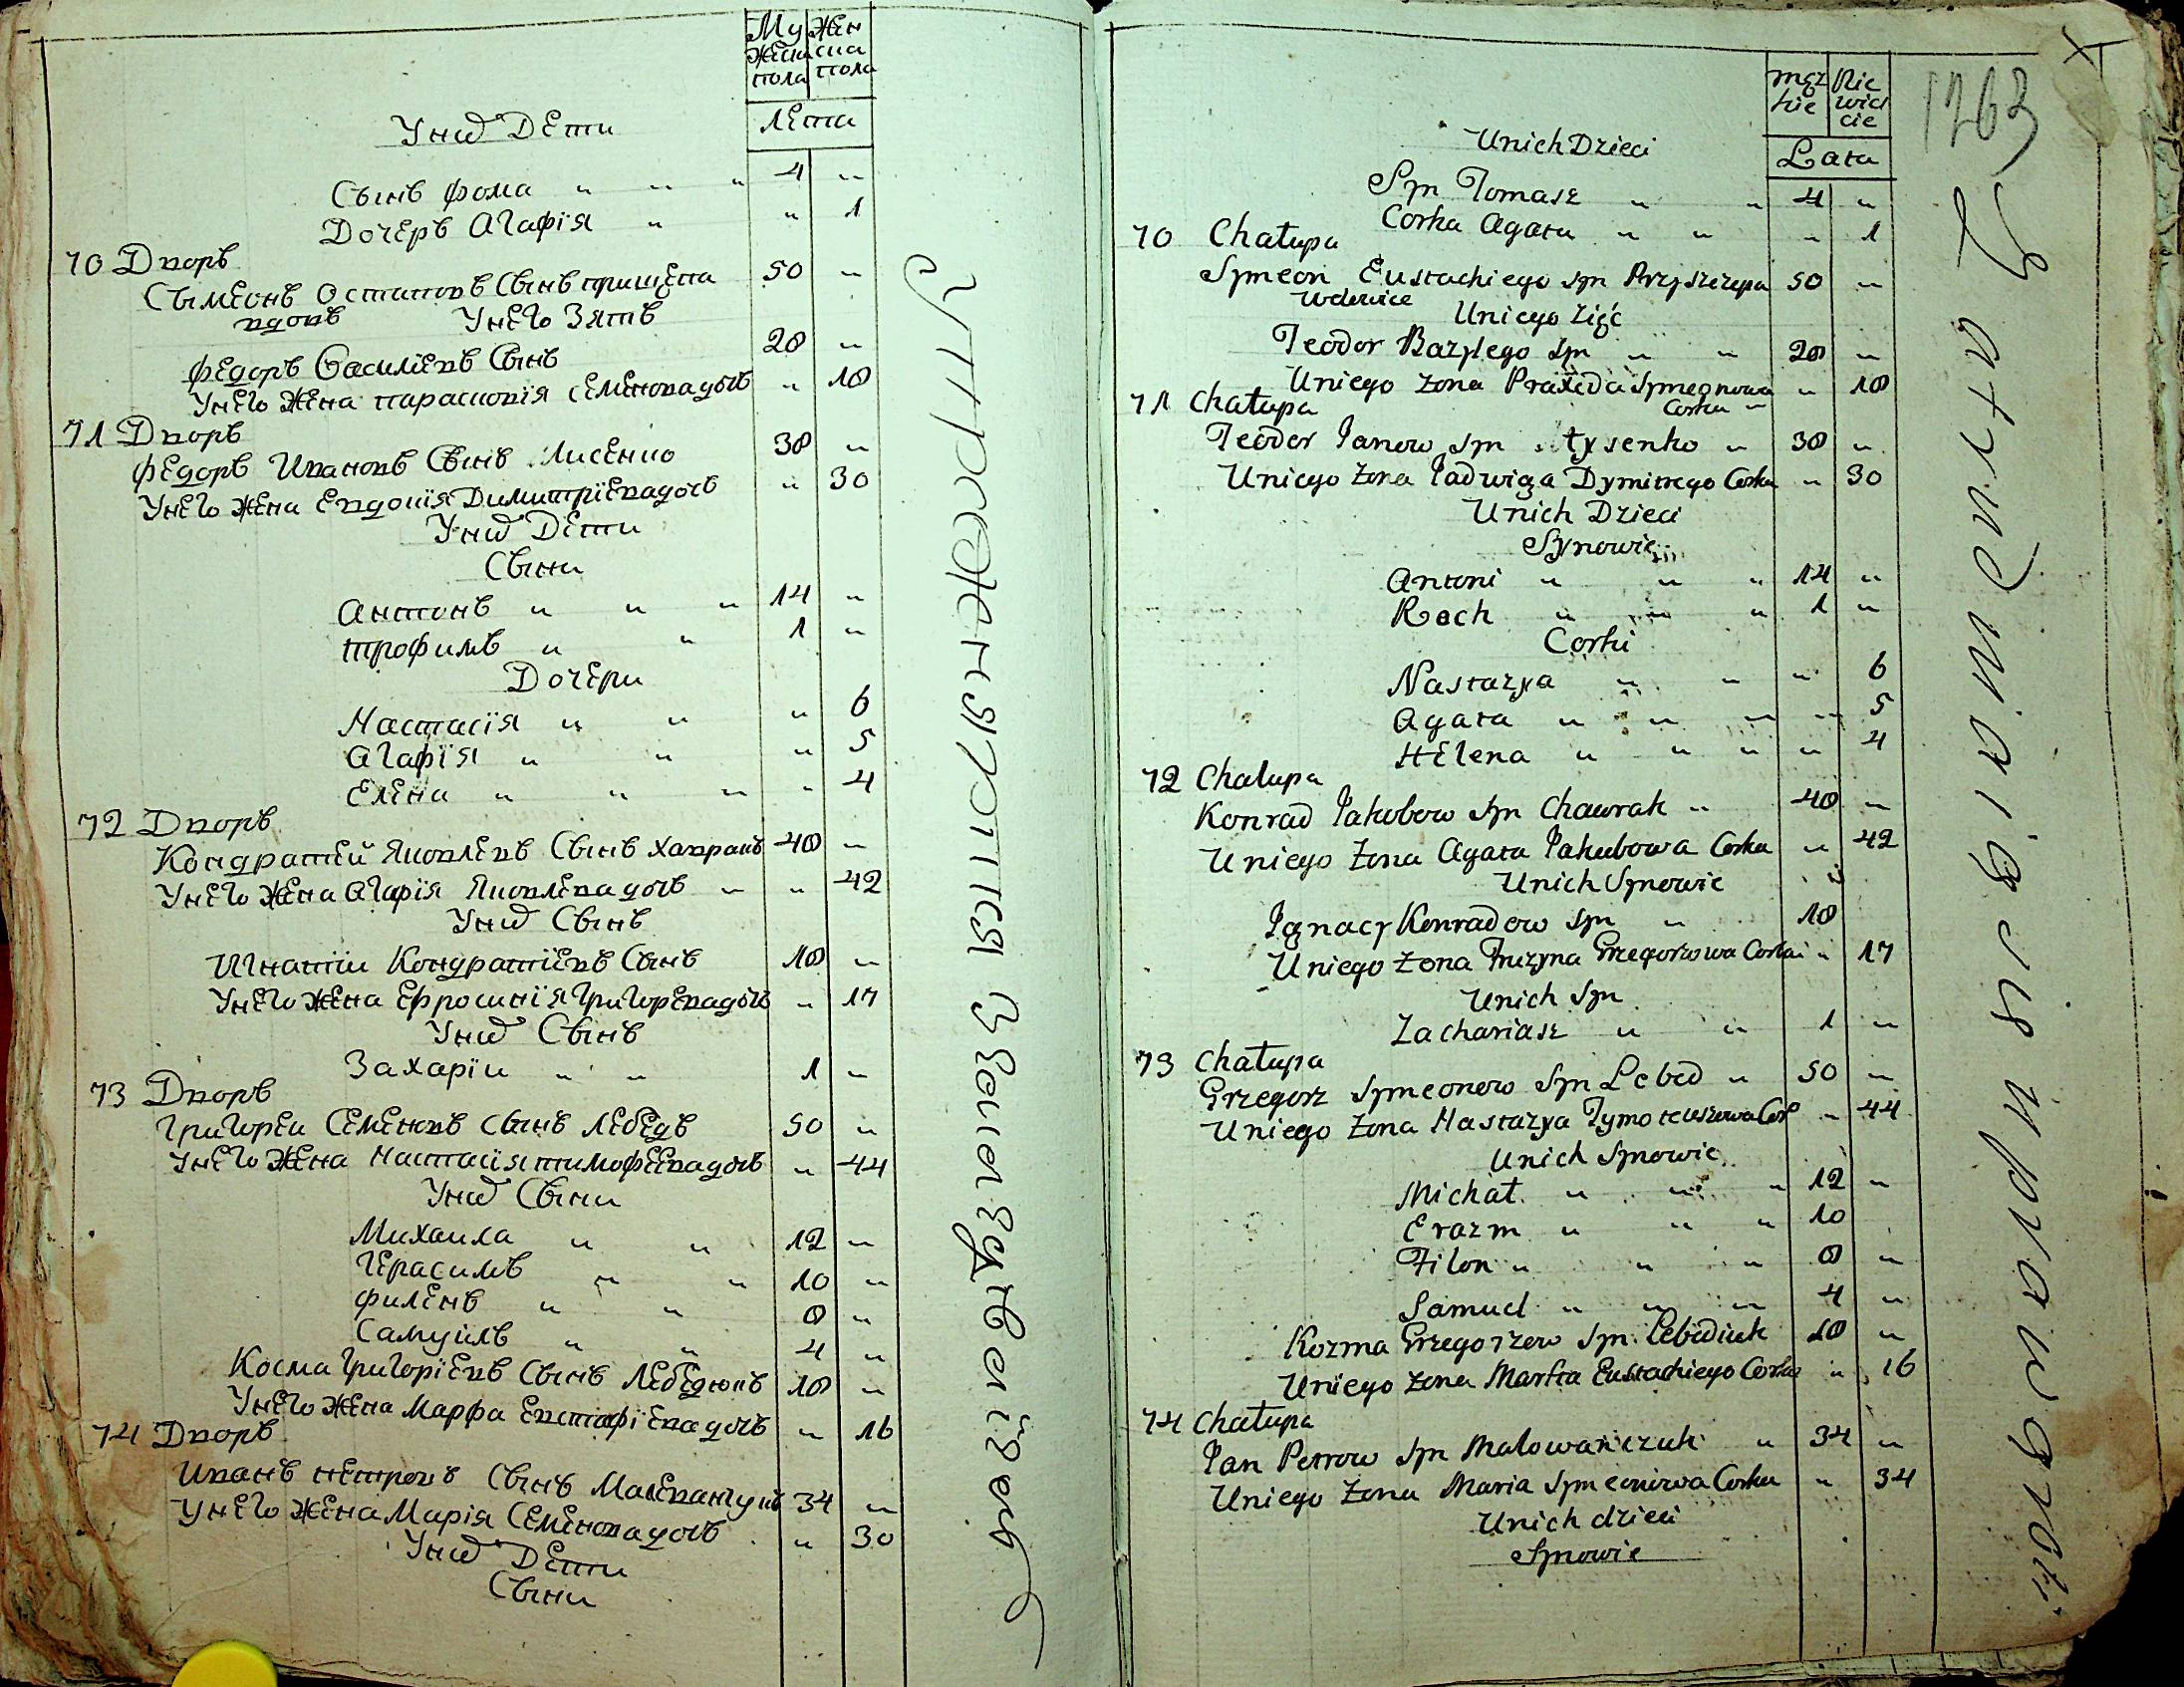 Му Жен
жеска ска
пола пола
Лета
Униѡ Дети
Сынъ Фома " " " 4 "
Дочеръ Агафія " " 1
70 Дворъ
Сымеонъ Остаповъ Сынъ Прищепа 50 "
вдовъ Унего Зять
Федоръ Василіевъ Сынъ 28 "
Унего Жена Парасковія Семеновадочь " 18
71 Дворъ
Федоръ Ивановъ Сынъ Лисенко 38 "
Унего Жена Евдокія Димитріевадочь " 30
Униѡ Дети
Сыни
Антонъ " " " 14 "
Трофимъ " " 1 "
Дочери
Настасія " " " 6
Агафія " " " 5
Елена " " " " 4
72 Дворъ
Кондратей Яковлевъ Сынъ Хавракъ 48 "
Унего Жена Агафія Яковлевадочь " " 42
Униѡ Сынъ
Игнатіи Кондратіевъ Сынъ 18 "
Унего Жена Ефросинія Григоревадочь " 17
Униѡ Сынъ
Захаріи " " 1 "
73 Дворъ
Григореи Семеновъ Сынъ Лебедь 50 "
Унего Жена Настасія Тимофеевадочь " 44
Униѡ Сыни
Михаила " " 12 "
Герасимъ " " 10 "
Филенъ " " 8 "
Самуилъ " " 4 "
Косма Григоріевъ Сынъ Лебедюкъ 18 "
Унего Жена Марфа Евстафіевадочь " 16
74 Дворъ
Иванъ Петровъ Сынъ Малеванчукъ 34 "
Унего Жена Марія Семеновадочь " 30
Униѡ Дети
Сыни
męz Nie
kie wieś
cie
Lata
1263
Unich Dzieci
Syn Tomasz " " 4 "
Corka Agata " " " 1
70 Chałupa
Symeon Eustachiego Syn Pryszczepa 50 "
Wdowiec Uniego Zięć
Teodor Bazylego Syn " " 28 "
Uniego Zona Praxeda Symeonowa " 18
Corka "
71 Chałupa
Teodor Janow Syn Łysenko " 38 "
Uniego Zona Jadwiga Dymitrego Corka " 30
Unich Dzieci
Synowie
Antoni " " " 14 "
Roch " " " 1 "
Corki
Nastazya " " " 6
Agata " " " " 5
Helena " " " " 4
72 Chalupa
Konrad Jakubow Syn Chawrak " 48 "
Uniego Zona Agata Jakubowa Corka " 42
Unich Synowie
Ignacy Konradow Syn " 18
Uniego Zona Fruzyna Grzegorzowa Corka " 17
Unich Syn
Zachariasz " " 1 "
73 Chałupa
Grzegorz Symeonow Syn Lebed " 50 "
Uniego Zona Nastazya Tymoteuszowa Cor " 44
Unich Synowie
Michał " " " 12 "
Erazm " " " 10
Filon " " " 8 "
Samuel " " " 4 "
Kozma Grzegorzow Syn Lebediuk 18 "
Uniego Zona Marta Eustachiego Corka " 16
74 Chałupa
Jan Petrow Syn Malowańczuk " 34 "
Uniego Zona Maria Symeonowa Corka " 34
Unich dzieci
Synowie